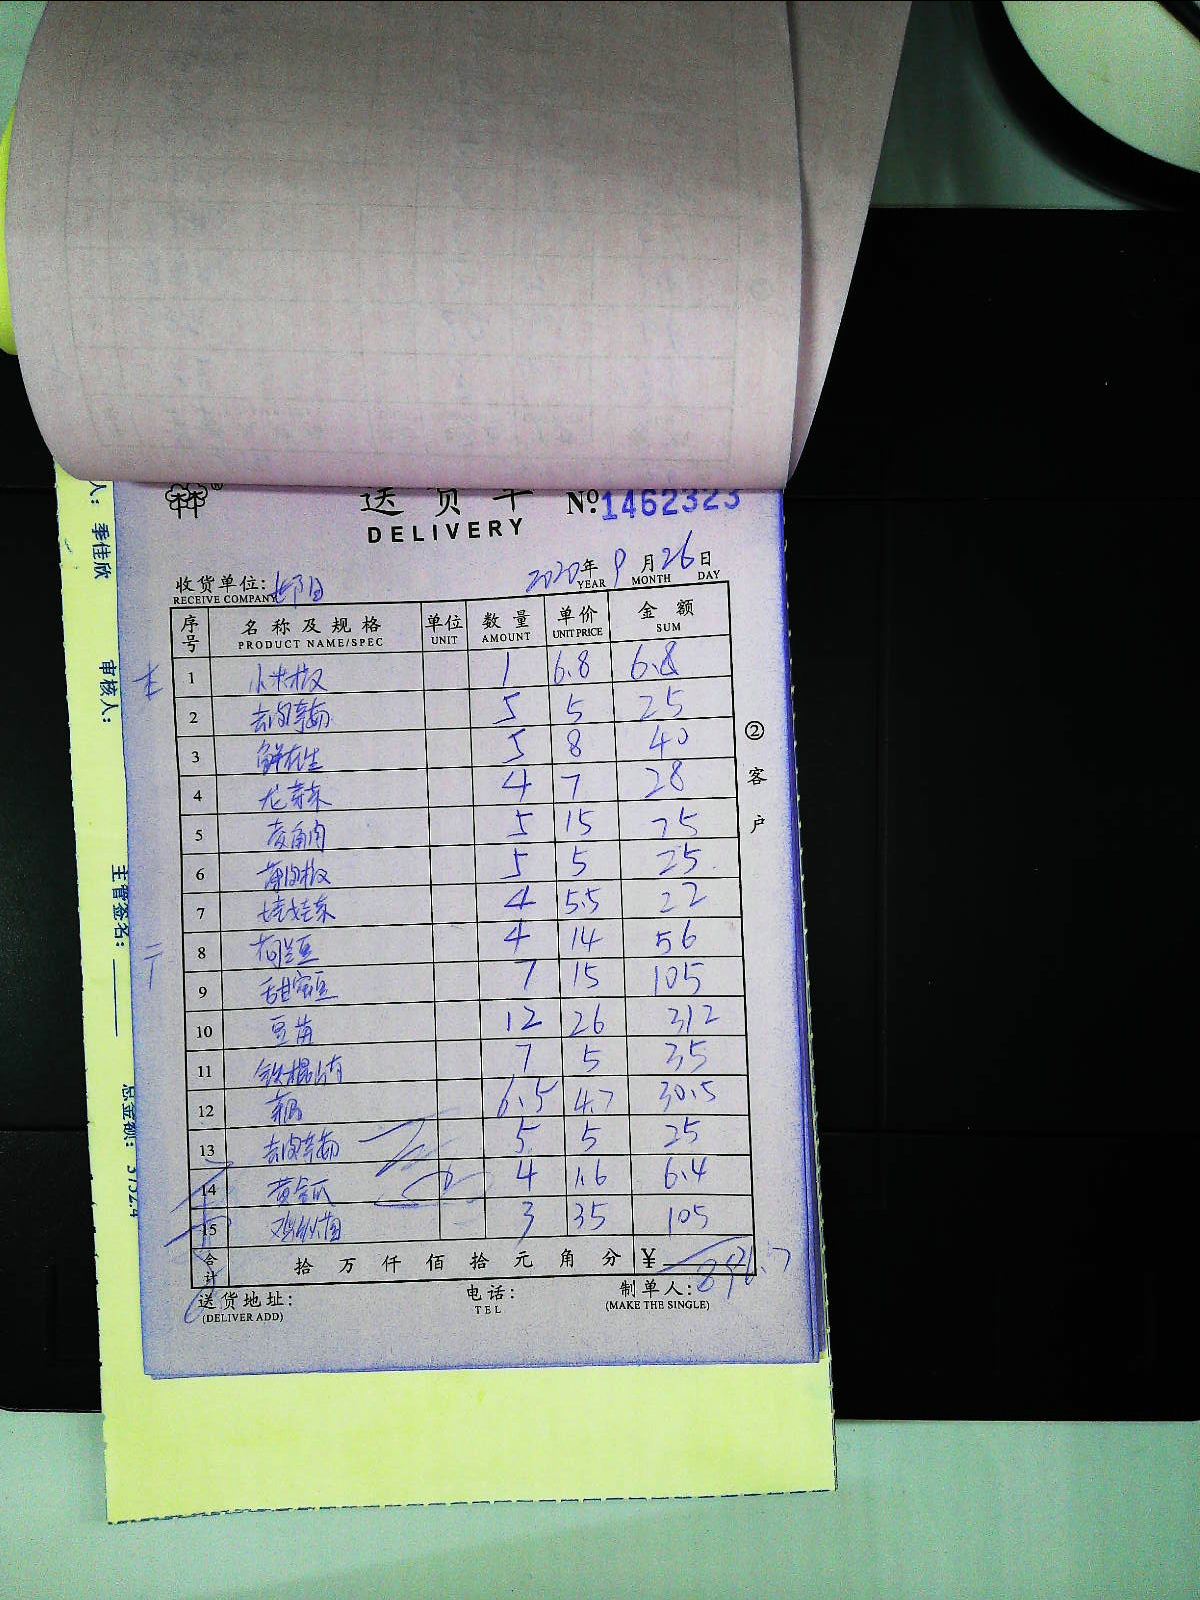 送货单 Nº:1462323
DELIVERY
2020年 9月 26日
YEAR MONTH DAY
收货单位:
RECEIVE COMPANY
序号 名称及规格 单位 数量 单价 金额
PRODUCT NAME/SPEC UNIT AMOUNT UNIT PRICE SUM
1 小米椒 1 6.8 6.8
2 5 5 25
3 鲜花生 5 8 40
4 龙芽菜 4 7 28
5 菱角肉 5 15 75
6 薄皮椒 5 5 25
7 娃娃菜 4 5.5 22
8 荷兰豆 4 14 56
9 甜蜜豆 7 15 105
10 豆苗 12 26 312
11 铁棍山药 7 5 35
12 6.5 4.7 30.5
13 5 5 25
14 黄金瓜 4 1.6 6.4
15 鸡纵菌 3 35 105
合计 拾 万 仟 佰 拾 元 角 分 ¥ 896.7
送货地址: 电话: 制单人:
(DELIVER ADD) TEL (MAKE THE SINGLE)
②客户
人: 季佳欣
审核人:
主管签名:
总金额: 3752.4